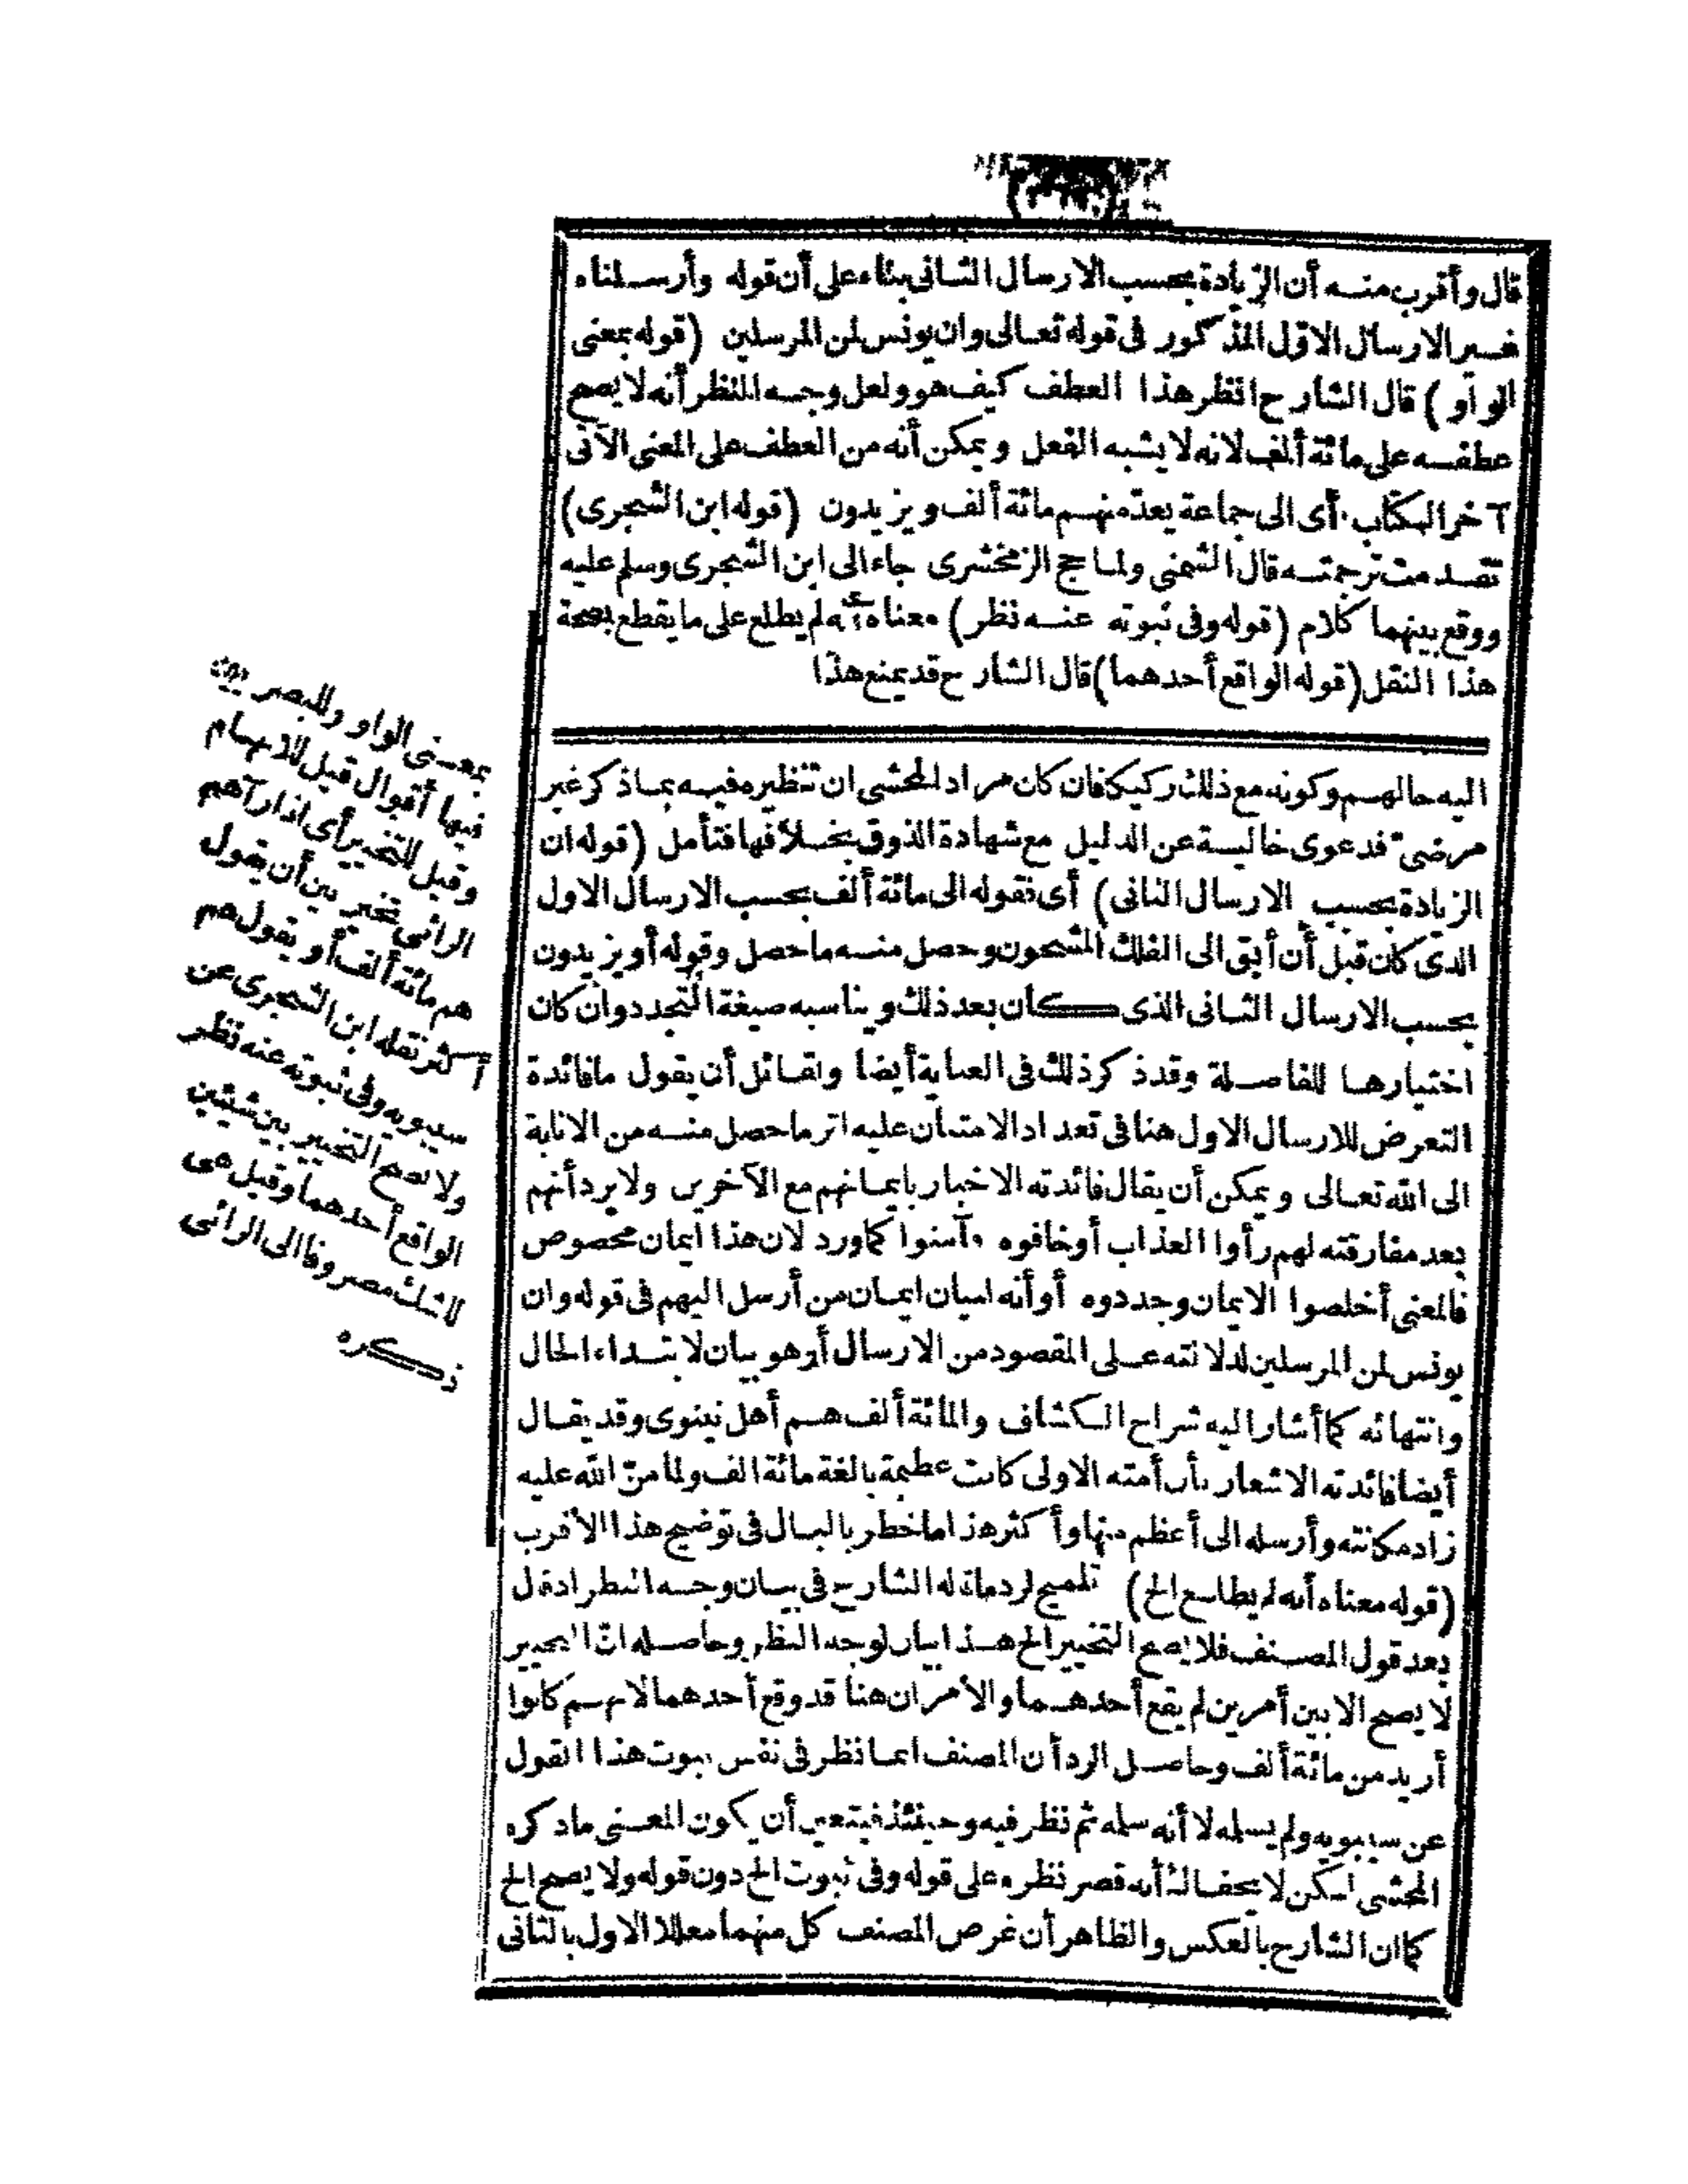 قال وأقرب منه أن الزيادة بحسب الارسال الثانى بناء على أن قوله وأرسلناه
غير الارسال الاول المذكور فى قوله تعالى وان يونس لمن المرسلين (قوله بمعنى
الواو) قال الشارح انظر هذا العطف كيف هو ولعل وجه النظر أنه لا يصح
عطفه على مائة ألف لانه لا يشبه الفعل ويمكن أنه من العطف على المعنى الآتى
آخر الكتاب أى الى جماعة يعدّ منهم مائة ألف ويزيدون (قوله ابن الشجرى)
تقدمت ترجمته قال الشمنى ولما حج الزمخشرى جاء الى ابن الشجرى وسلم عليه
ووقع بينهما كلام (قوله وفى ثبوته عنه نظر) معناه أنه لم يطلع على ما يقطع بصحة
هذا النقل (قوله الواقع أحدهما) قال الشارح قد يمنع هذا
اليه حالهم وكونه مع ذلك ركيكا فان كان مراد المحشى ان تنظيره فيه بما ذكر غير
مرضىّ فدعوى خالية عن الدليل مع شهادة الذوق بخلافها فتأمل (قوله ان
الزيادة بحسب الارسال الثانى) أى فقوله الى مائة ألف بحسب الارسال الاول
الذى كان قبل أن أبق الى الفلك المشحون وحصل منه ما حصل وقوله أو يزيدون
بحسب الارسال الثانى الذى كان بعد ذلك ويناسبه صيغة التجدد وان كان
اختيارها للفاصلة وقد ذكر ذلك فى العناية أيضا ولقائل أن يقول ما فائدة
التعرض للارسال الاول هنا فى تعداد الامتنان عليه اثر ما حصل منه من الانابة
الى الله تعالى ويمكن أن يقال فائدته الاخبار بايمانهم مع الآخرين ولا يرد أنهم
بعد مفارقته لهم رأوا العذاب أو خافوه وآمنوا كما ورد لان هذا ايمان مخصوص
فالمعنى أخلصوا الايمان وجددوه أو أنه لبيان ايمان من أرسل اليهم فى قوله وان
يونس لمن المرسلين لدلالته على المقصود من الارسال أو هو بيان لابتداء الحال
وانتهائه كما أشار اليه شراح الكشاف والمائة ألف هم أهل نينوى وقد يقال
أيضا فائدته الاشعار بأن أمته الاولى كانت عظيمة بالغة مائة الف ولما منّ الله عليه
زاد مكانته وأرسله الى أعظم منها وأكثر هذا ما خطر بالبال فى توضيح هذا الأقرب
(قوله معناه أنه لم يطلع الخ) تلميح لرد ما قاله الشارح فى بيان وجه النظر اذ قال
بعد قول المصنف فلا يصح التخيير الخ هذا بيان لوجه النظر وحاصله انّ التخيير
لا يصح الا بين أمرين لم يقع أحدهما والأمران هنا قد وقع أحدهما لانهم كانوا
أزيد من مائة ألف وحاصل الرد أن المصنف انما نظر فى نفس ثبوت هذا القول
عن سيبويه ولم يسلمه لا أنه سلمه ثم نظر فيه وحينئذ فيتعين أن يكون المعنى ما ذكره
المحشى لكن لا يخفاك أنه قصر نظره على قوله وفى ثبوت الخ دون قوله ولا يصح الخ
كما ان الشارح بالعكس والظاهر أن غرض المصنف كل منهما معللا الاول بالثانى
بمعنى الواو وللبصريين
فيها أقوال قيل للابهام
وقيل للتخيير أى اذا رآهم
الرائى تخير بين أن يقول
هم مائة ألف أو يقول هم
أكثر نقله ابن الشجرى عن
سيبويه وفى ثبوته عنه نظر
ولا يصح التخيير بين شيئين
الواقع أحدهما وقيل هى
للشك مصروفا الى الرائى
ذكره